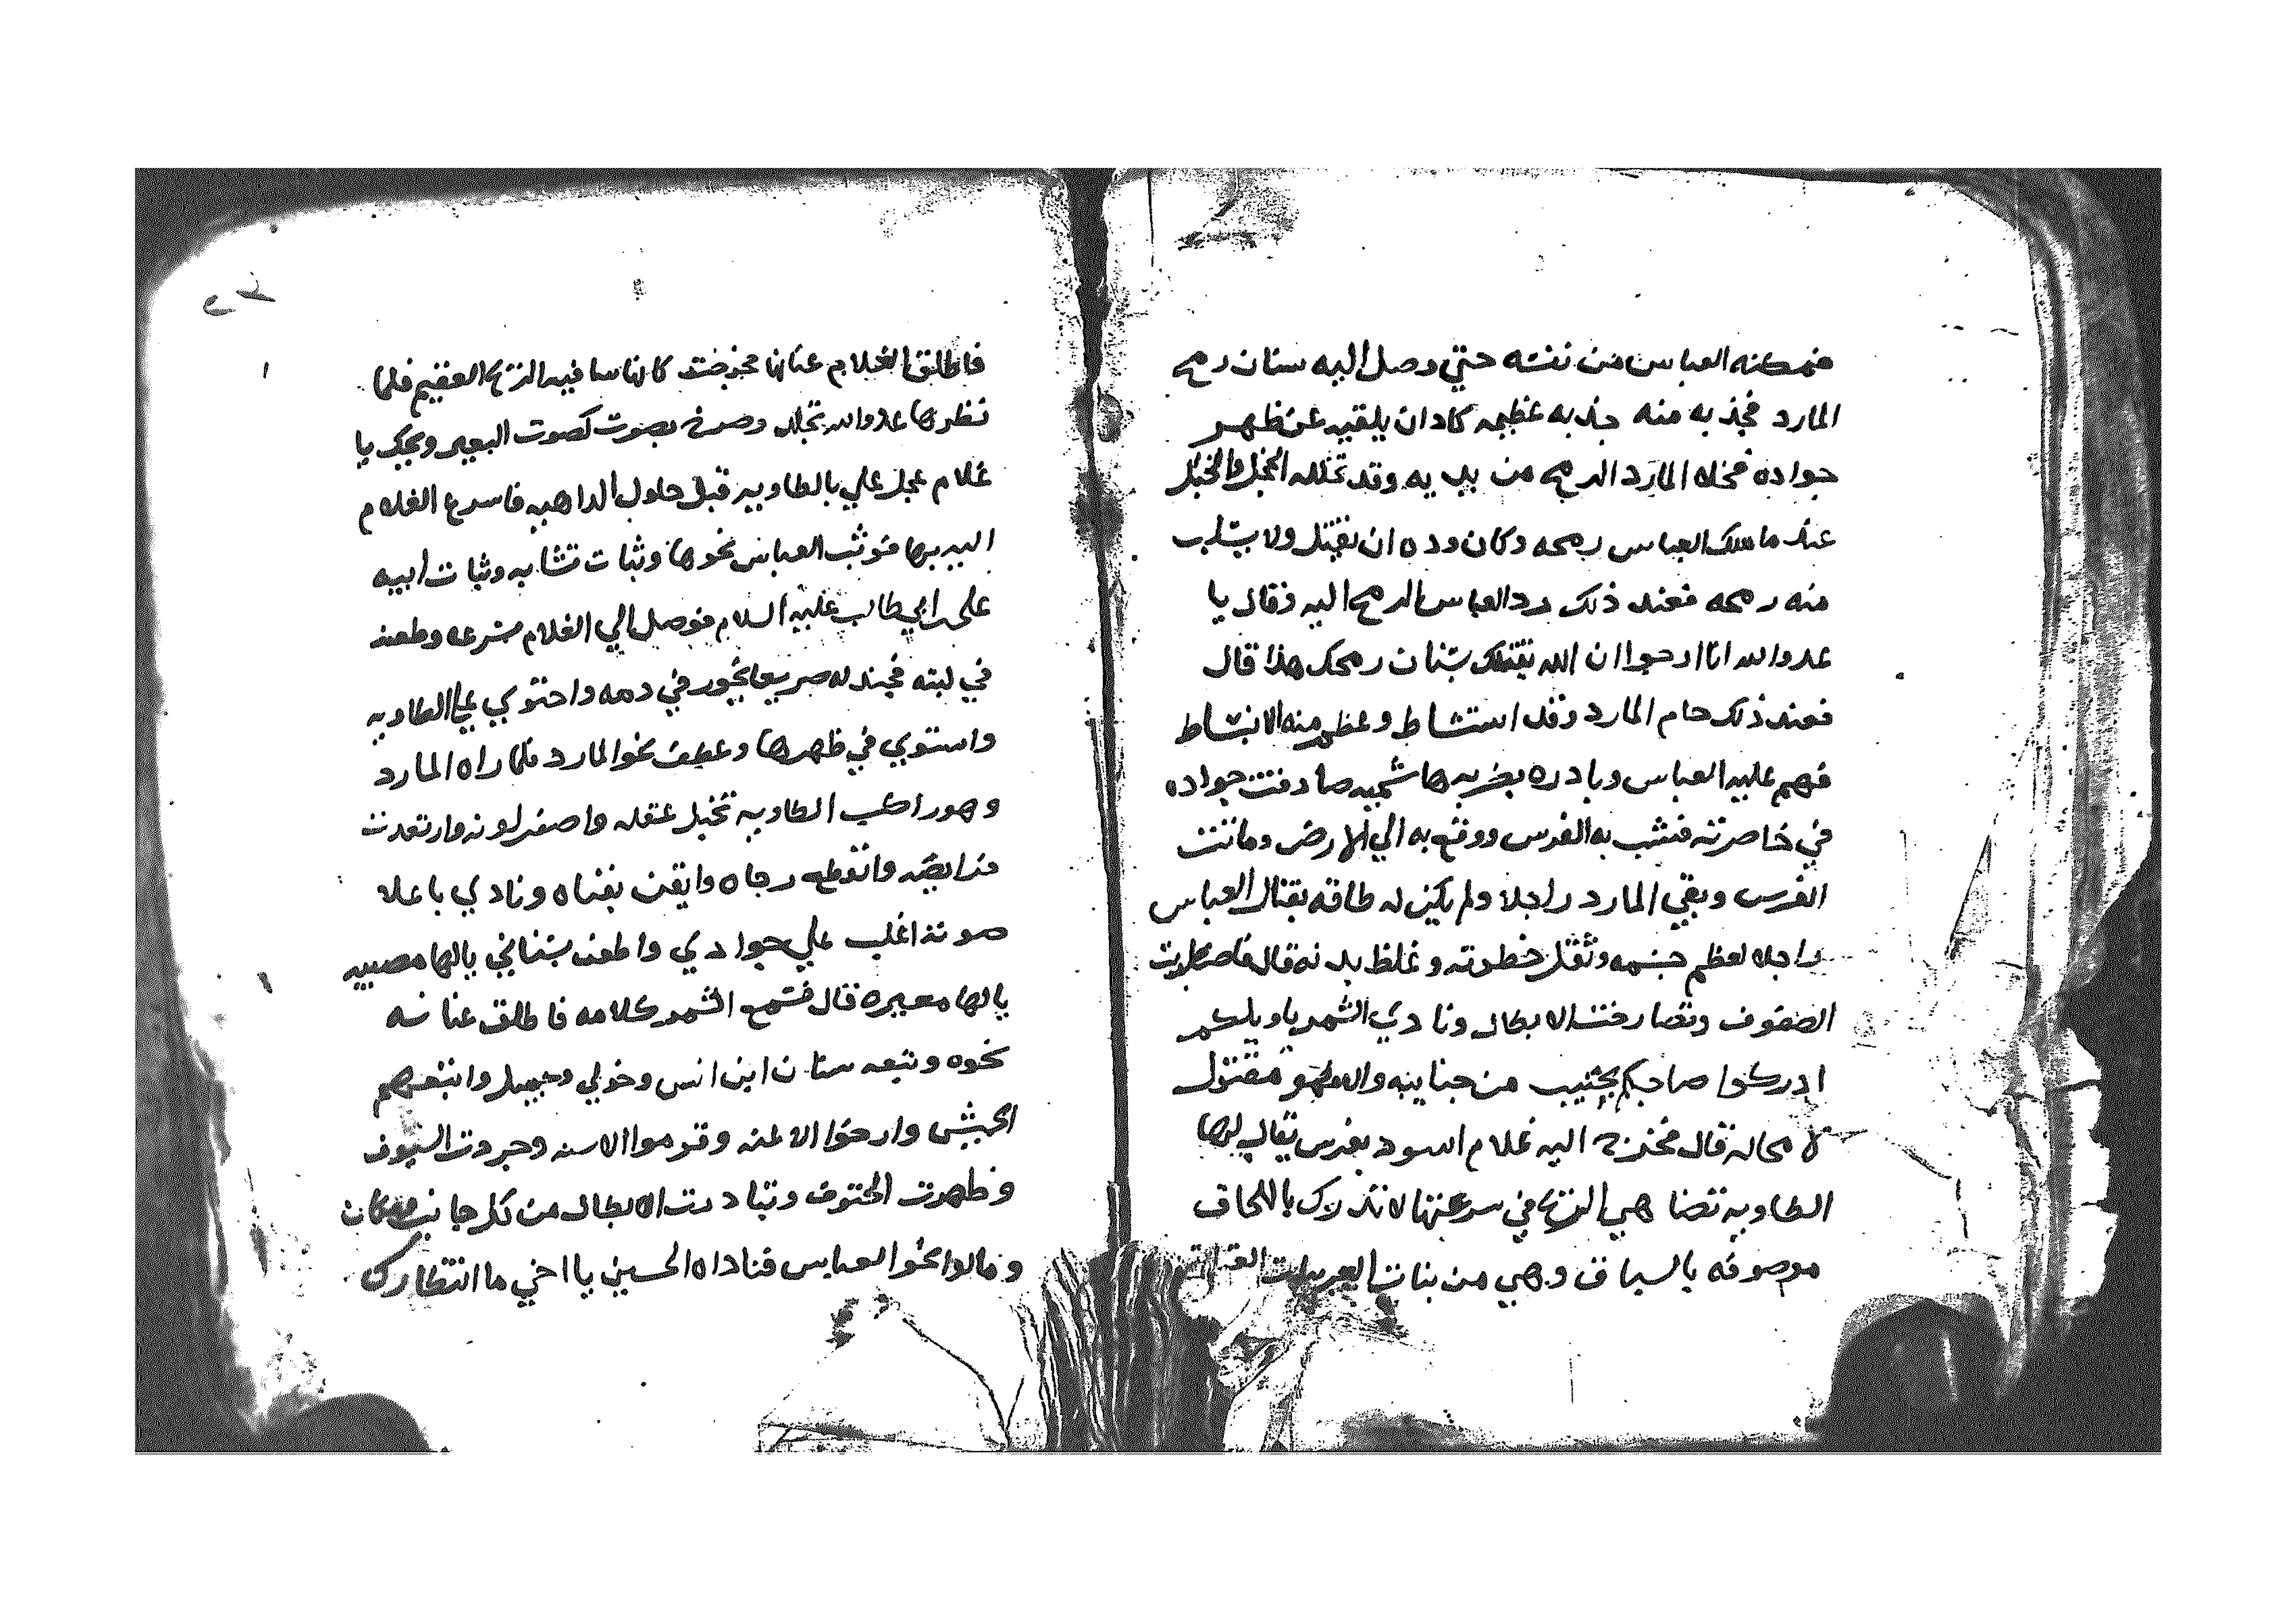 فمكنه العباس من نفسه حتي وصل اليه سنان رمح
المارد فجذبه منه جذبه عظيمه كاد ان يلقيه عن ظهر
جواده فخلا المارد الرمح من يديه وقد تخلله الخجل والخبل
عند ما ملك العباس رمحه وكان وده ان يقتل ولا يسلب
منه رمحه فعند ذلك رد العباس الرمح اليه وقال يا
عدو الله انا ارجوا ان الله يقتلك بسنان رمحك هذا قال
فعند ذلك حام المارد وقد استشاط وعظم منه الانبساط
فهم عليه العباس وبادره بضربه هاشميه صادفت جواده
في خاصرته فشب به الفرس ووقع به الي الارض وماتت
الفرس وبقي المارد راجلا ولم يكن له طاقه بقتال العباس
راجلا لعظم جسمه وثقل خطوته وغلظ بدنه قال فاضطربت
الصفوف وتصارخت الابطال ونادي الشمر يا ويلكم
ادركوا صاحبكم بجنيب من جنايبه والا فهو مقتول
لا محاله قال فخرج اليه غلام اسود بفرس يقال لها
الطاويه تضاهي الريح في سرعتها لا تدرك باللحاق
موصوفه بالسباق وهي من بنات العربيات
فاطلق الغلام عنانها فخرجت كانها ساقيه الريح العقيم فلما
نظرها عدو الله تجلد وصرخ بصوت كصوت البعير ويحك يا
غلام عجل علي بالطاويه قبل حلول الداهيه فاسرع الغلام
اليه بها فوثب العباس نحوها وثبات تشابه وثبات ابيه
علي ابي طالب عليه السلام فوصل الي الغلام مسرعا وطعنه
في لبته فجندله صريعا يخور في دمه واحتوي علي الطاويه
واستوي في ظهرها وعطف نحو المارد فلما راه المارد
وهو راكب الطاويه تخبل عقله واصفر لونه وارتعدت
فرايصه وانقطع رجاه وايقن بفناه ونادي باعلا
صوته اغلب علي جوادي واطعن بسناني يالها مصيبه
يالها معيره قال فسمع الشمر كلامه فاطلق عنانه
نحوه وتبعه سنان ابن انس وخولي وجميل واتبعهم
الجيش وارخوا الاعنه وقوموا الاسنه وجردت السيوف
وظهرت الحتوف وتبادرت الابطال من كل جانب ومكان
ومالوا نحو العباس فناداه الحسين يا اخي ما انتظارك